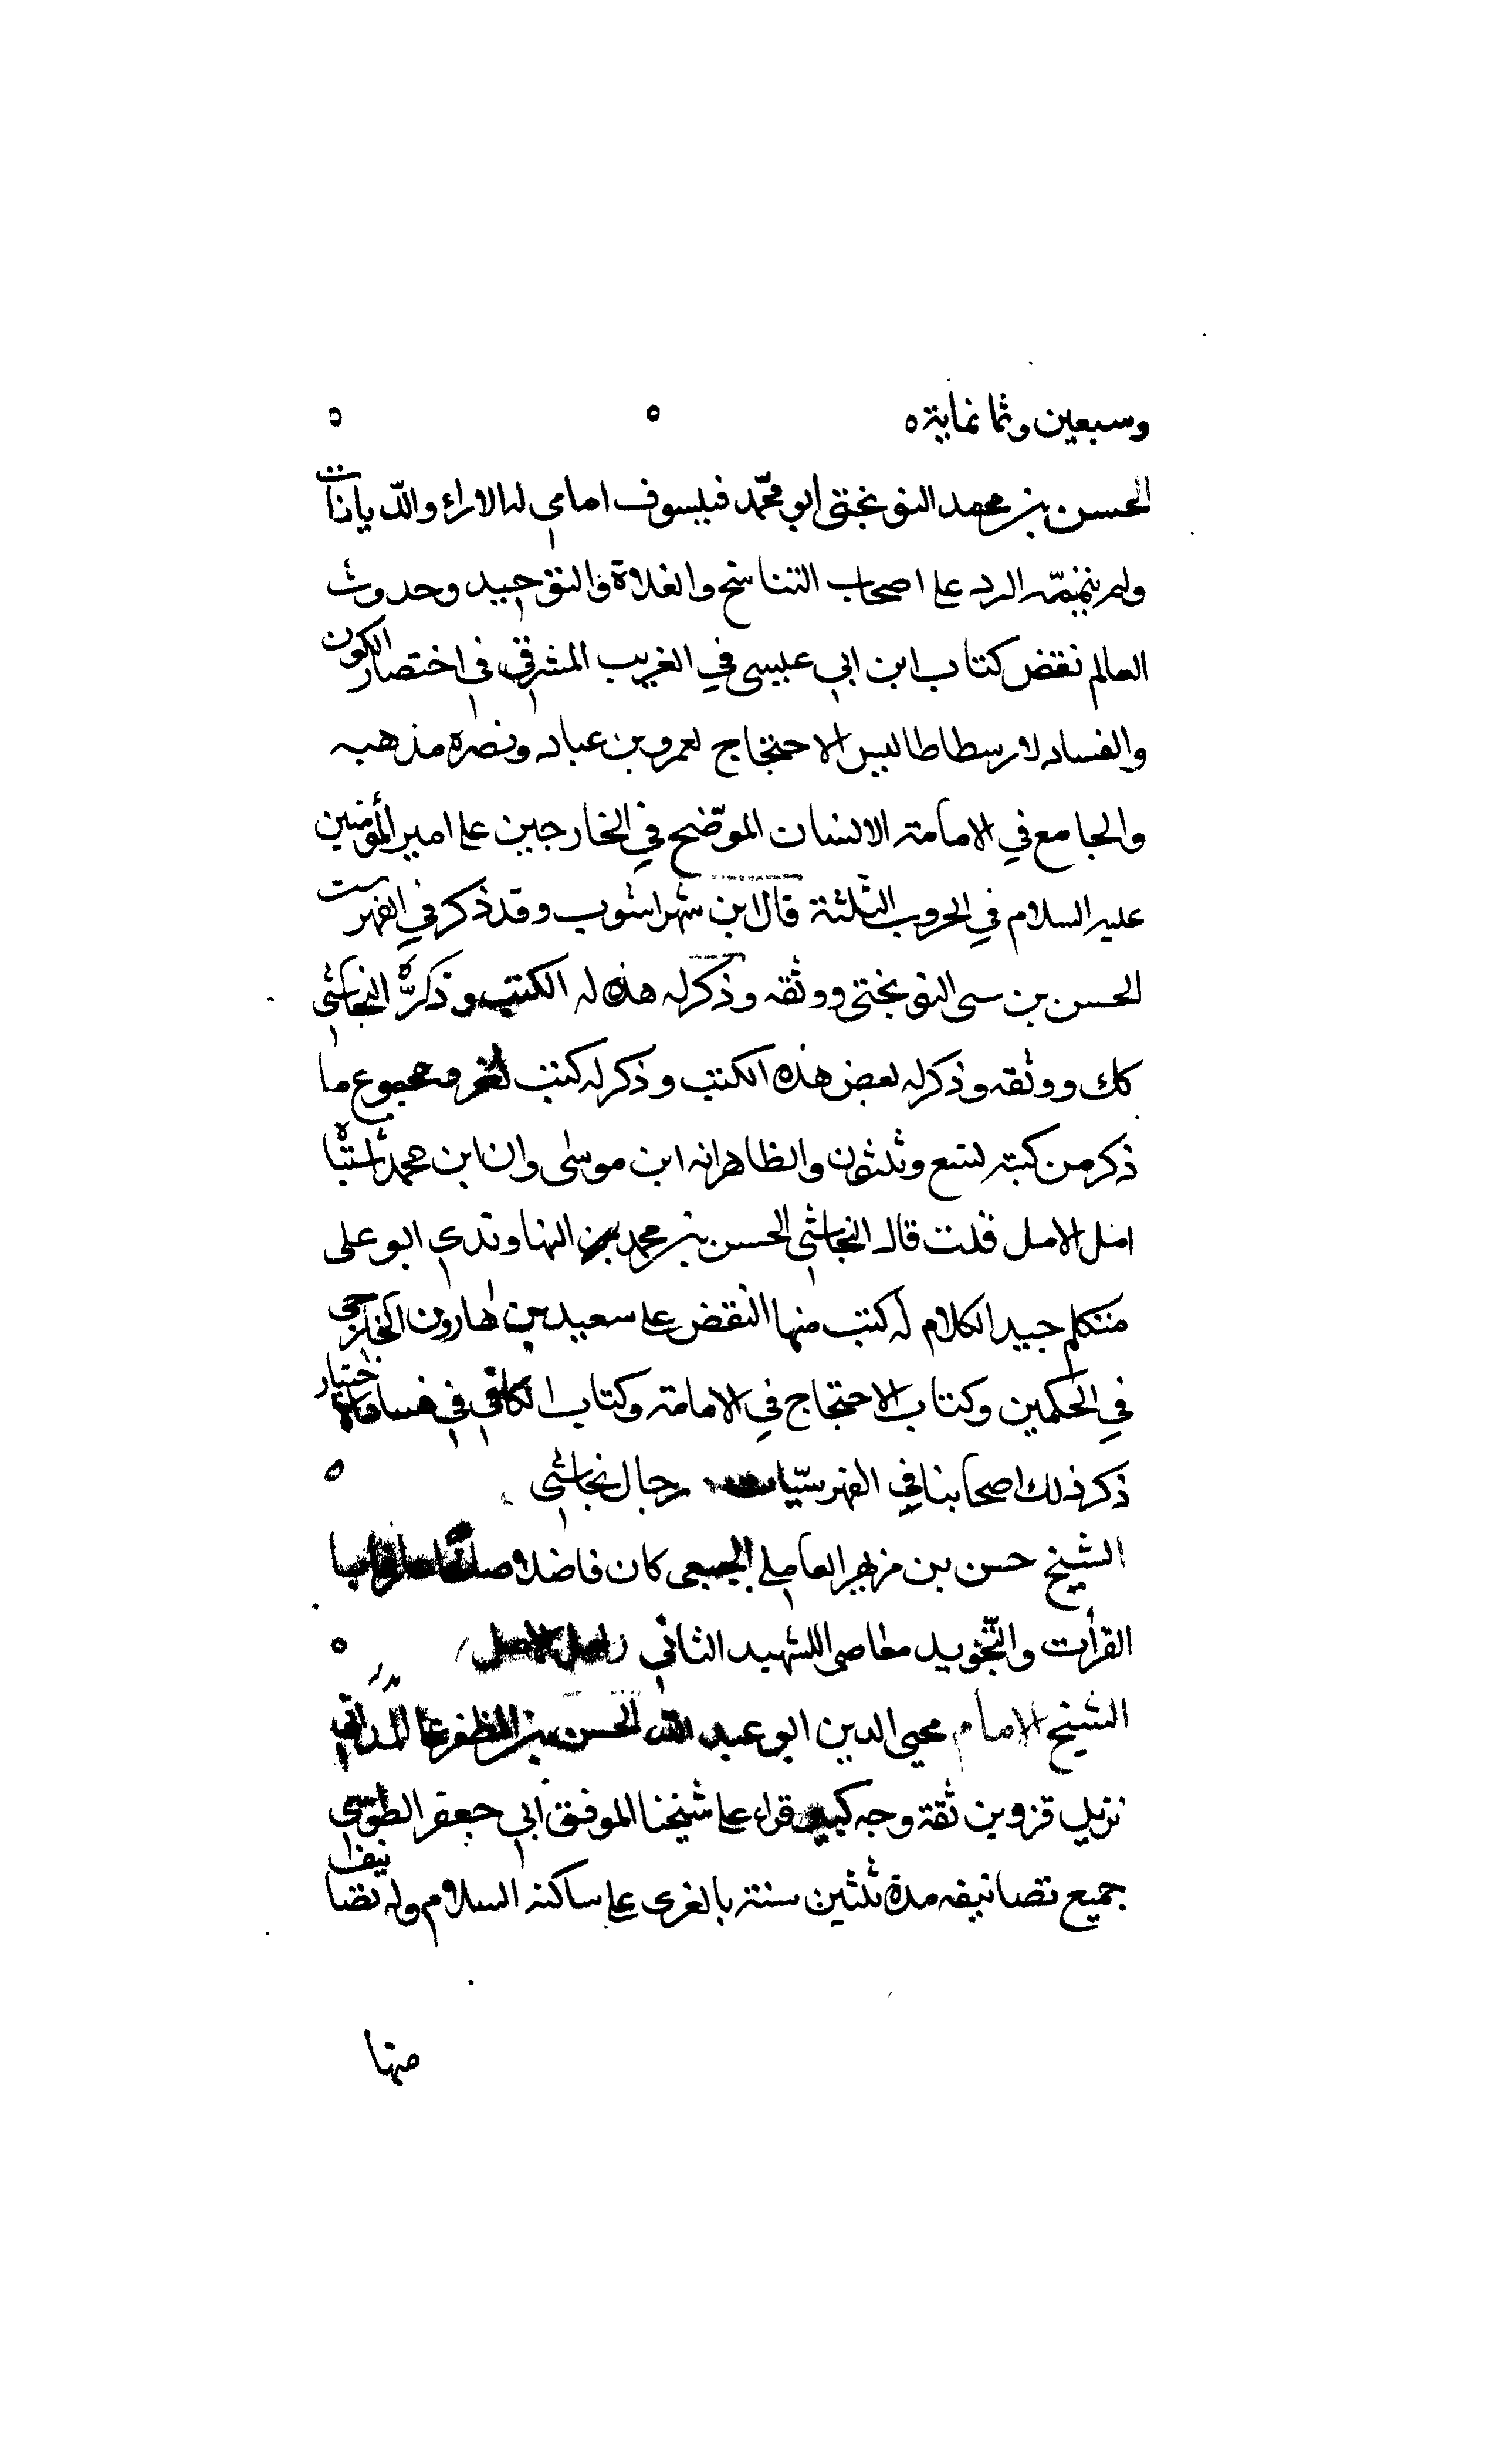 وسبعين وثمانماية ه
الحسن بن محمد النوبختى ابو محمّد فيلسوف امامي له الاراء والدّيانات
ولم يتممّه الرد على اصحاب التناسخ والغلاة والتوحيد وحدوث
العالم نقض كتاب ابن ابي عيسى في الغريب المشرقي في اختصار الكون
والفساد لارسطاطاليس الاحتجاج لعمرو بن عباد ونصرة مذهبه
والجامع في الامامة الانسان الموضّح في الخارجين على امير المؤمنين
عليه السلام في الحروب الثلثة قال ابن شهراشوب وقد ذكر في الفهرست
الحسن بن موسى النوبختى ووثقه وذكر له هذه الكتب وذكره النجاشي
كك ووثقه وذكر له بعض هذه الكتب وذكر له كتب اخر مجموع ما
ذكر من كتبه تسع وثلثون والظاهر انه ابن موسى وان ابن محمد اشتباه
امل الامل قلت قال النجاشي الحسن بن محمد النهاوندي ابو على
متكلم جيد الكلام له كتب منها النقض على سعيد بن هارون الخارجي
في الحكمين وكتاب الاحتجاج في الامامة وكتاب الكافي في فساد الاختيار
ذكر ذلك اصحابنا في الفهرسّيات رجال نجاشي
الشيخ حسن بن مزهر العاملي الجبعى كان فاضلا صالحا
القرأت والتّجويد معاصر اللشهيد الثاني امل الامل
الشيخ الامام محيى الدين ابو عبد الله الحسن بن المظفر الحمداني
نزيل قزوين ثقة وجه كبير قراء على شيخنا الموفق ابي جعفر الطوسي
جميع تصانيفه مدة ثلثين سنة بالغرى على ساكنه السلام وله تصانيف
منها